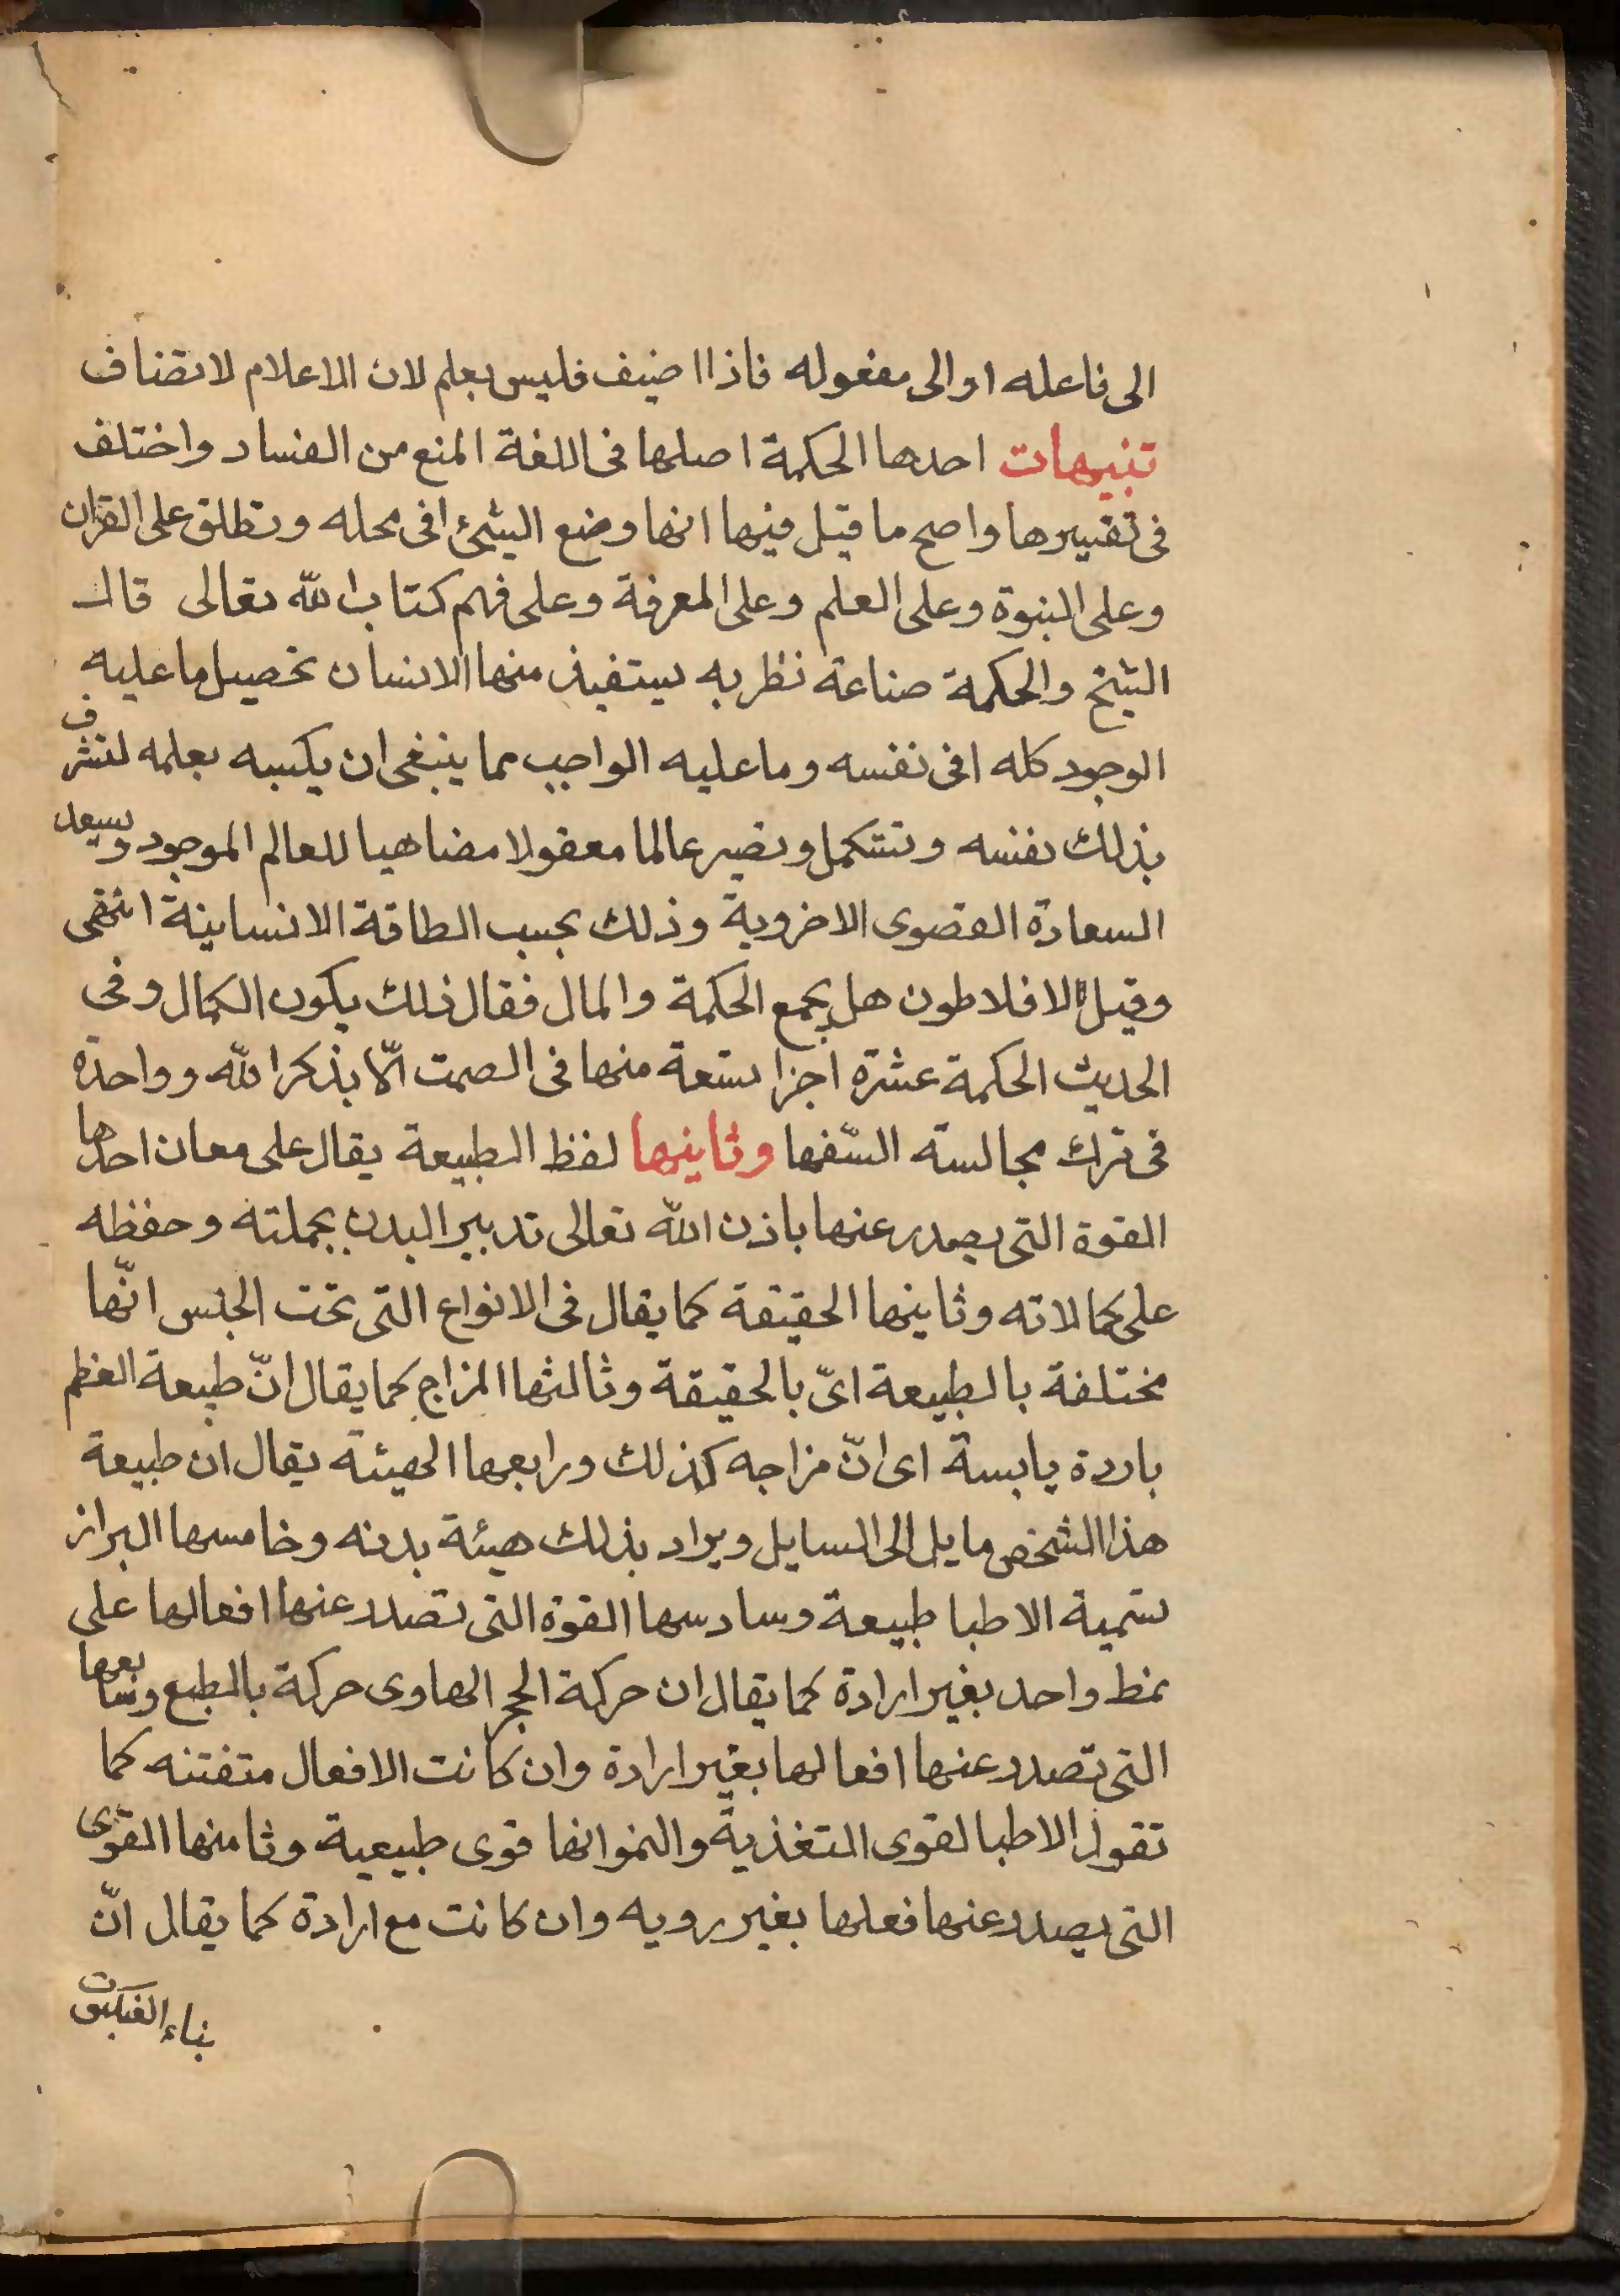 الى فاعله او الى مفعوله فاذا اضيف فليس بعلم لان الاعلام لا تضاف
تنبيهات احدها الحكمة اصلها فى اللغة المنع من الفساد واختلف
فى تفسيرها واصح ما قيل فيها انها وضع الشئ فى محله وتطلق على القران
وعلى النبوة وعلى العلم وعلى المعرفة وعلى فهم كتاب الله تعالى قال
الشيخ والحكمة صناعة نظريه يستفيد منها الانسان تحصيل ما عليه
الوجود كله فى نفسه وما عليه الواجب مما ينبغى ان يكسبه بعلمه لتشرف
بذلك نفسه وتستكمل وتصير عالما معقولا مضاهيا للعالم الموجود ويسعد
السعادة القصوى الاخروية وذلك بحسب الطاقة الانسانية انتهى
وقيل لافلاطون هل يجمع الحكمة والمال فقال ذلك يكون الكمال وفى
الحديث الحكمة عشرة اجزا تسعة منها فى الصمت الّا بذكر الله وواحدة
فى ترك مجالسة السّفها وثانيها لفظ الطبيعة يقال على معان احدها
القوة التى يصدر عنها باذن الله تعالى تدبير البدن بجملته وحفظه
على كمالاته وثانيها الحقيقة كما يقال فى الانواع التى تحت الجنس انّها
مختلفة بالطبيعة اىّ بالحقيقة وثالثها المزاج كما يقال انّ طبيعة العظم
باردة يابسة اى انّ مزاجه كذلك ورابعها الهيئة يقال ان طبيعة
هذا الشخص مايل الى السايل ويراد بذلك هيئة بدنه وخامسها البراز
تسمية الاطبا طبيعة وسادسها القوة التى تصدر عنها افعالها على
نمط واحد بغير ارادة كما يقال ان حركة الحجر الهاوى حركة بالطبع وسابعها
التى تصدر عنها افعالها بغير ارادة وان كانت الافعال متفننه كما
تقول الاطبا لقوى التغذية والنمو انها قوى طبيعية وثامنها القوّى
التى يصدر عنها فعلها بغير رويه وان كانت مع ارادة كما يقال انّ
بناء العنكبوت